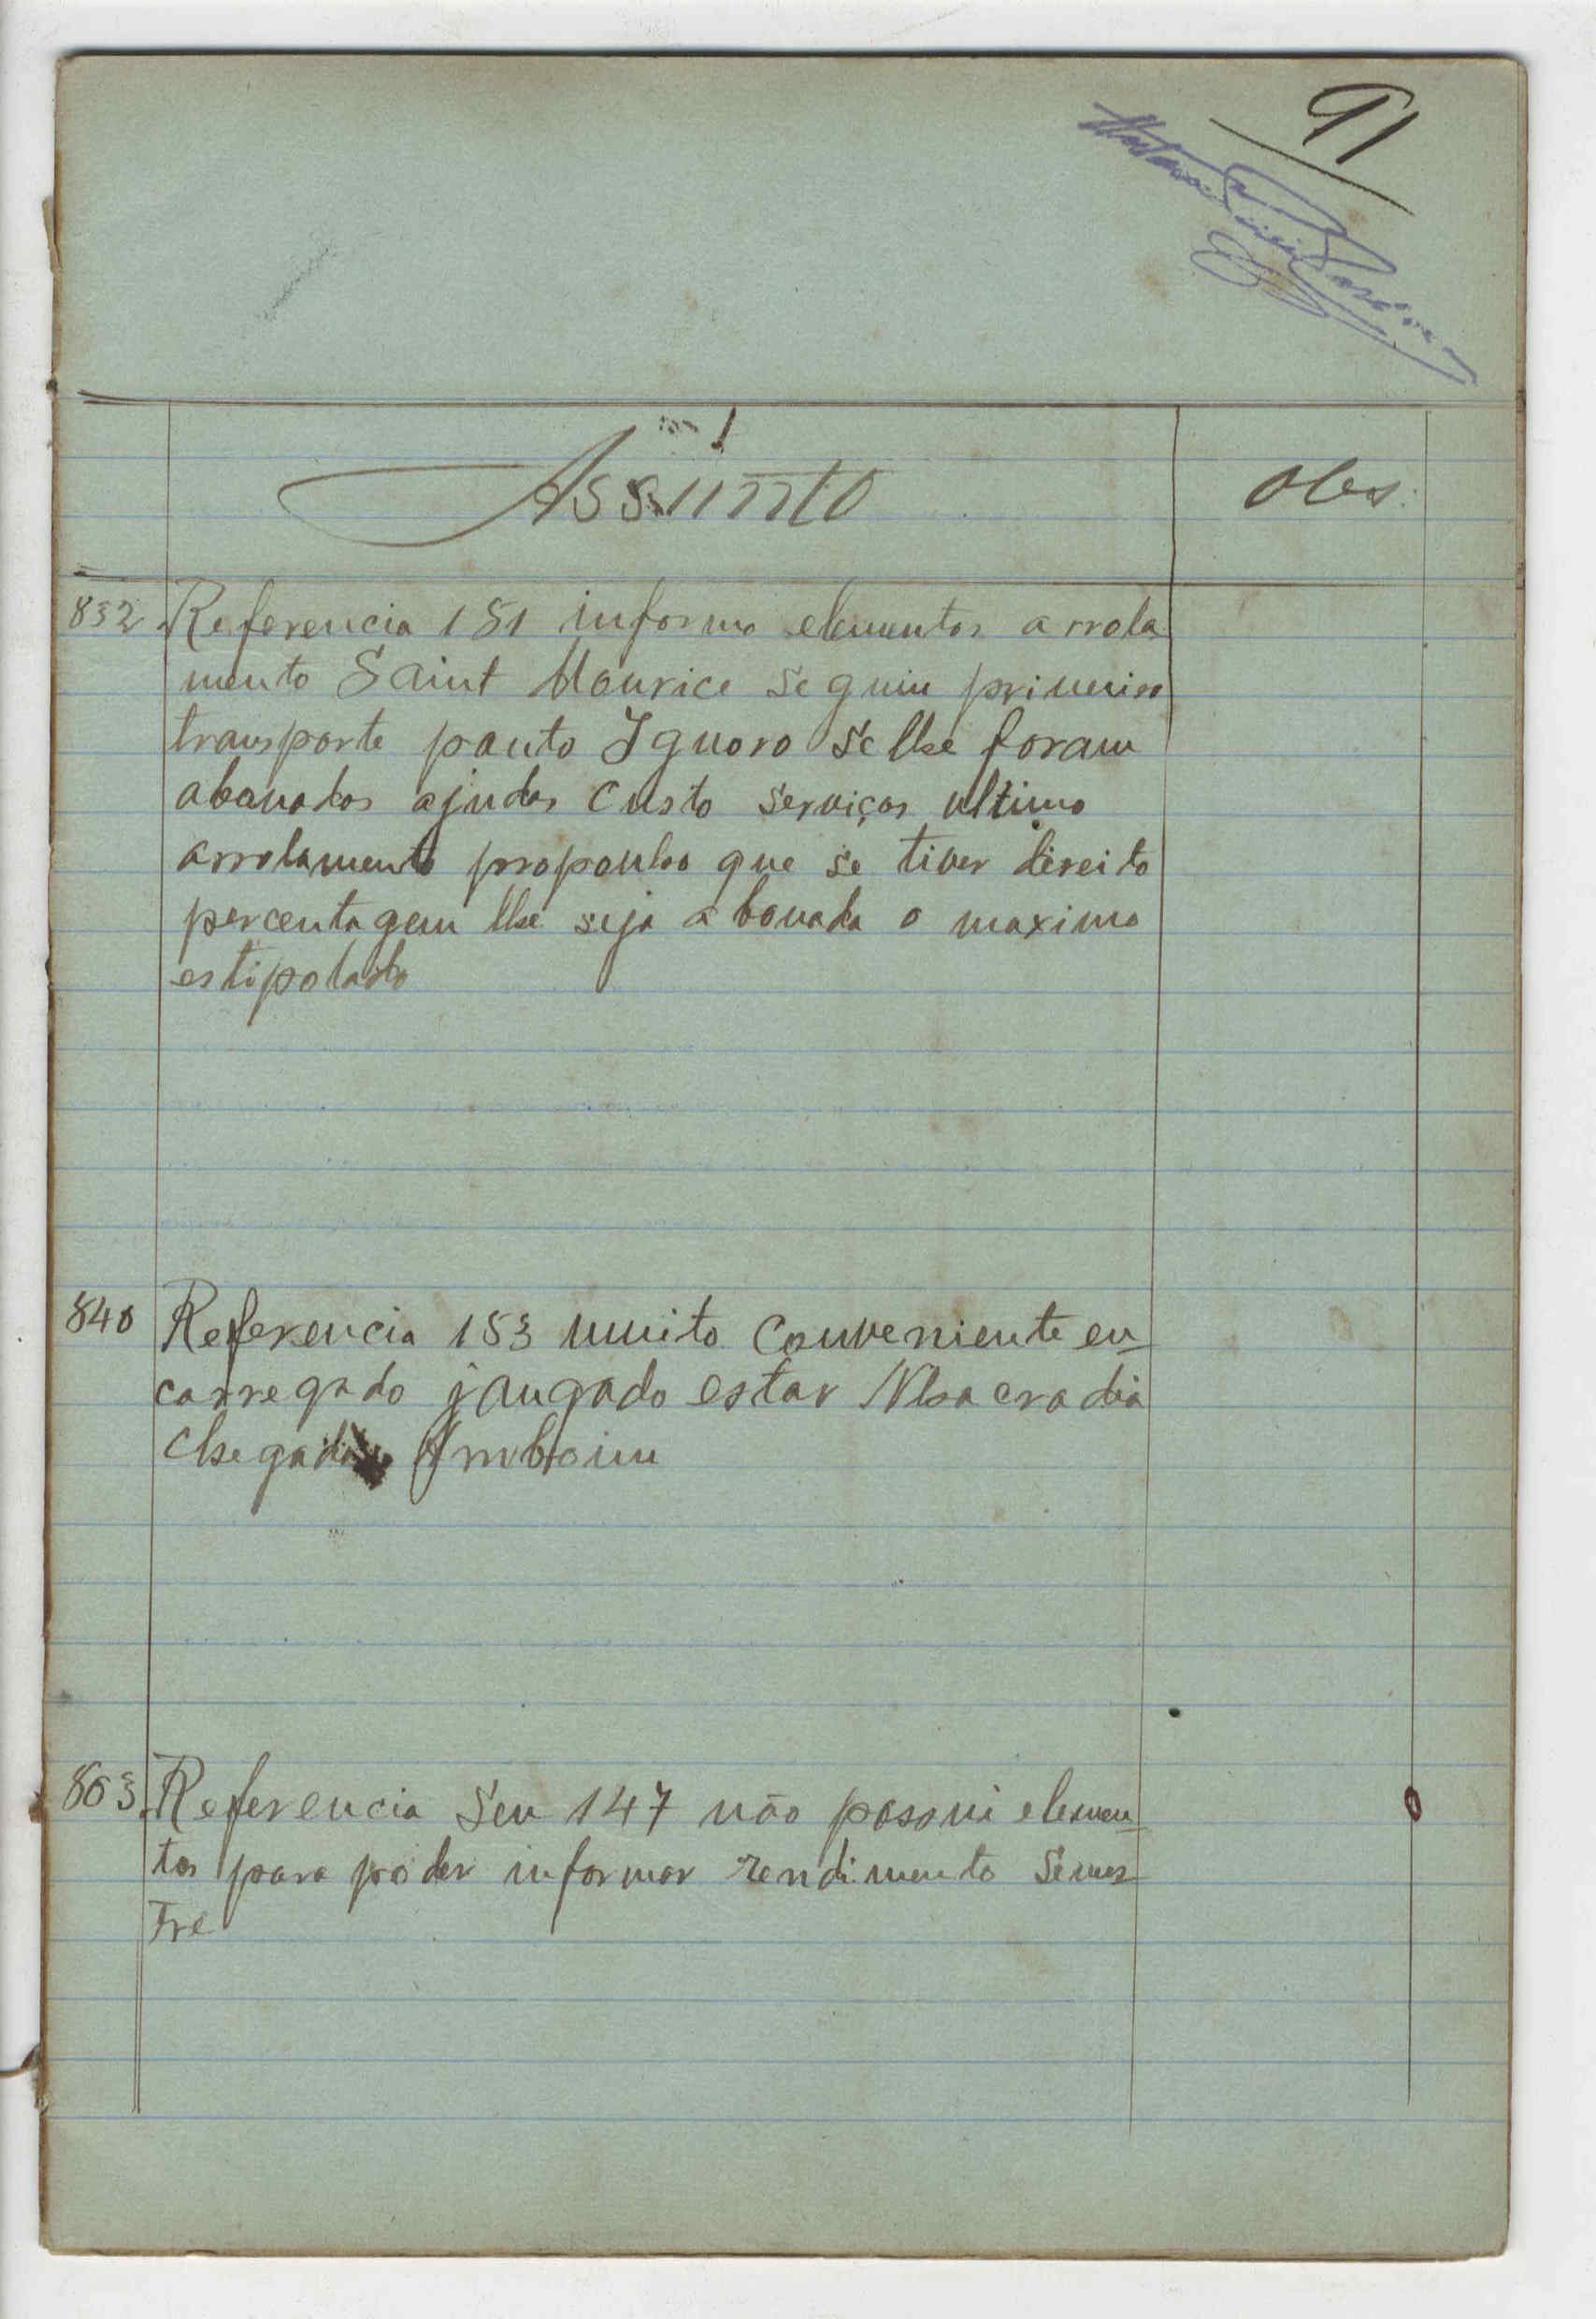 91
Assunto
Obs.
832 Referencia 151 informo elementos arrola
mento Saint Mourice seguiu primeiro
transporte ponto Ignoro se lhe foram
abonados ajudas custo serviços ultimo
arrolamento proponho que se tiver direito
percentagem lhe seja abonada o maximo
estipolado
840 Referencia 153 muito conveniente en-
carregado jangado estar Nhacra dia
chegada Amboim
863 Referencia seu 147 não possui elemen-
tos para poder informar rendimento semes-
tre